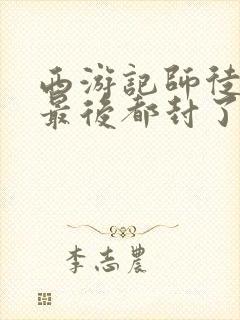 西游記師徒
最後都封了
李志農